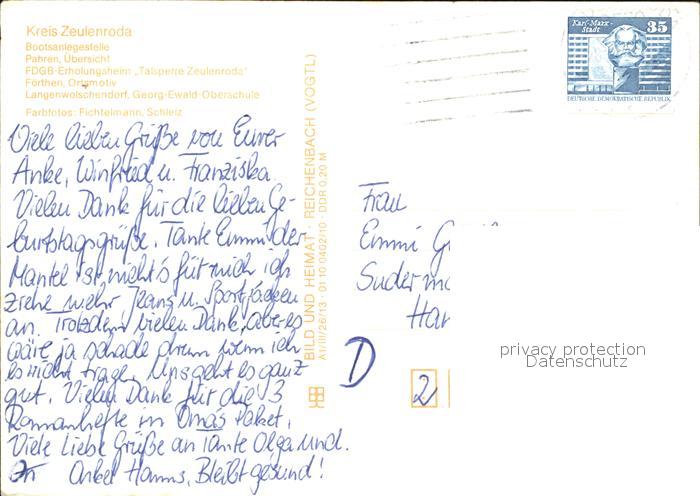 Kreis Zeulenroda
Bootsanlegestelle
Pahren, Übersicht
FDGB-Erholungsheim „Talsperre Zeulenroda"
Förthen, Ortsmotiv
Langenwolschendorf, Georg-Ewald-Oberschule
Farbfotos: Fichtelmann, Schleiz
Viele lieben Grüße von Eurer
Anke, Winfried u. Franziska.
Vielen Dank für die lieben Ge-
burtstagsgrüße. Tante Emmi der
Mantel ist nicht's für mich ich
ziehe mehr Jeans u. Sportjacken
an. Trotzdem vielen Dank, aber es
wäre ja schade drum wenn ich
es nicht trage. Uns geht es ganz
gut. Vielen Dank für die 3
Romanhefte in Omas Paket.
Viele Liebe Grüße an Tante Olga und
Onkel Hanns, Bleibt gesund!
BILD UND HEIMAT · REICHENBACH (VOGTL)
A1/III/26/13 · 01 10 0402/10 · DDR 0,20 M
Karl-Marx-
Stadt
35
DEUTSCHE DEMOKRATISCHE REPUBLIK
Frau
Emmi G
Suderm
Han
D
2
privacy protection
Datenschutz